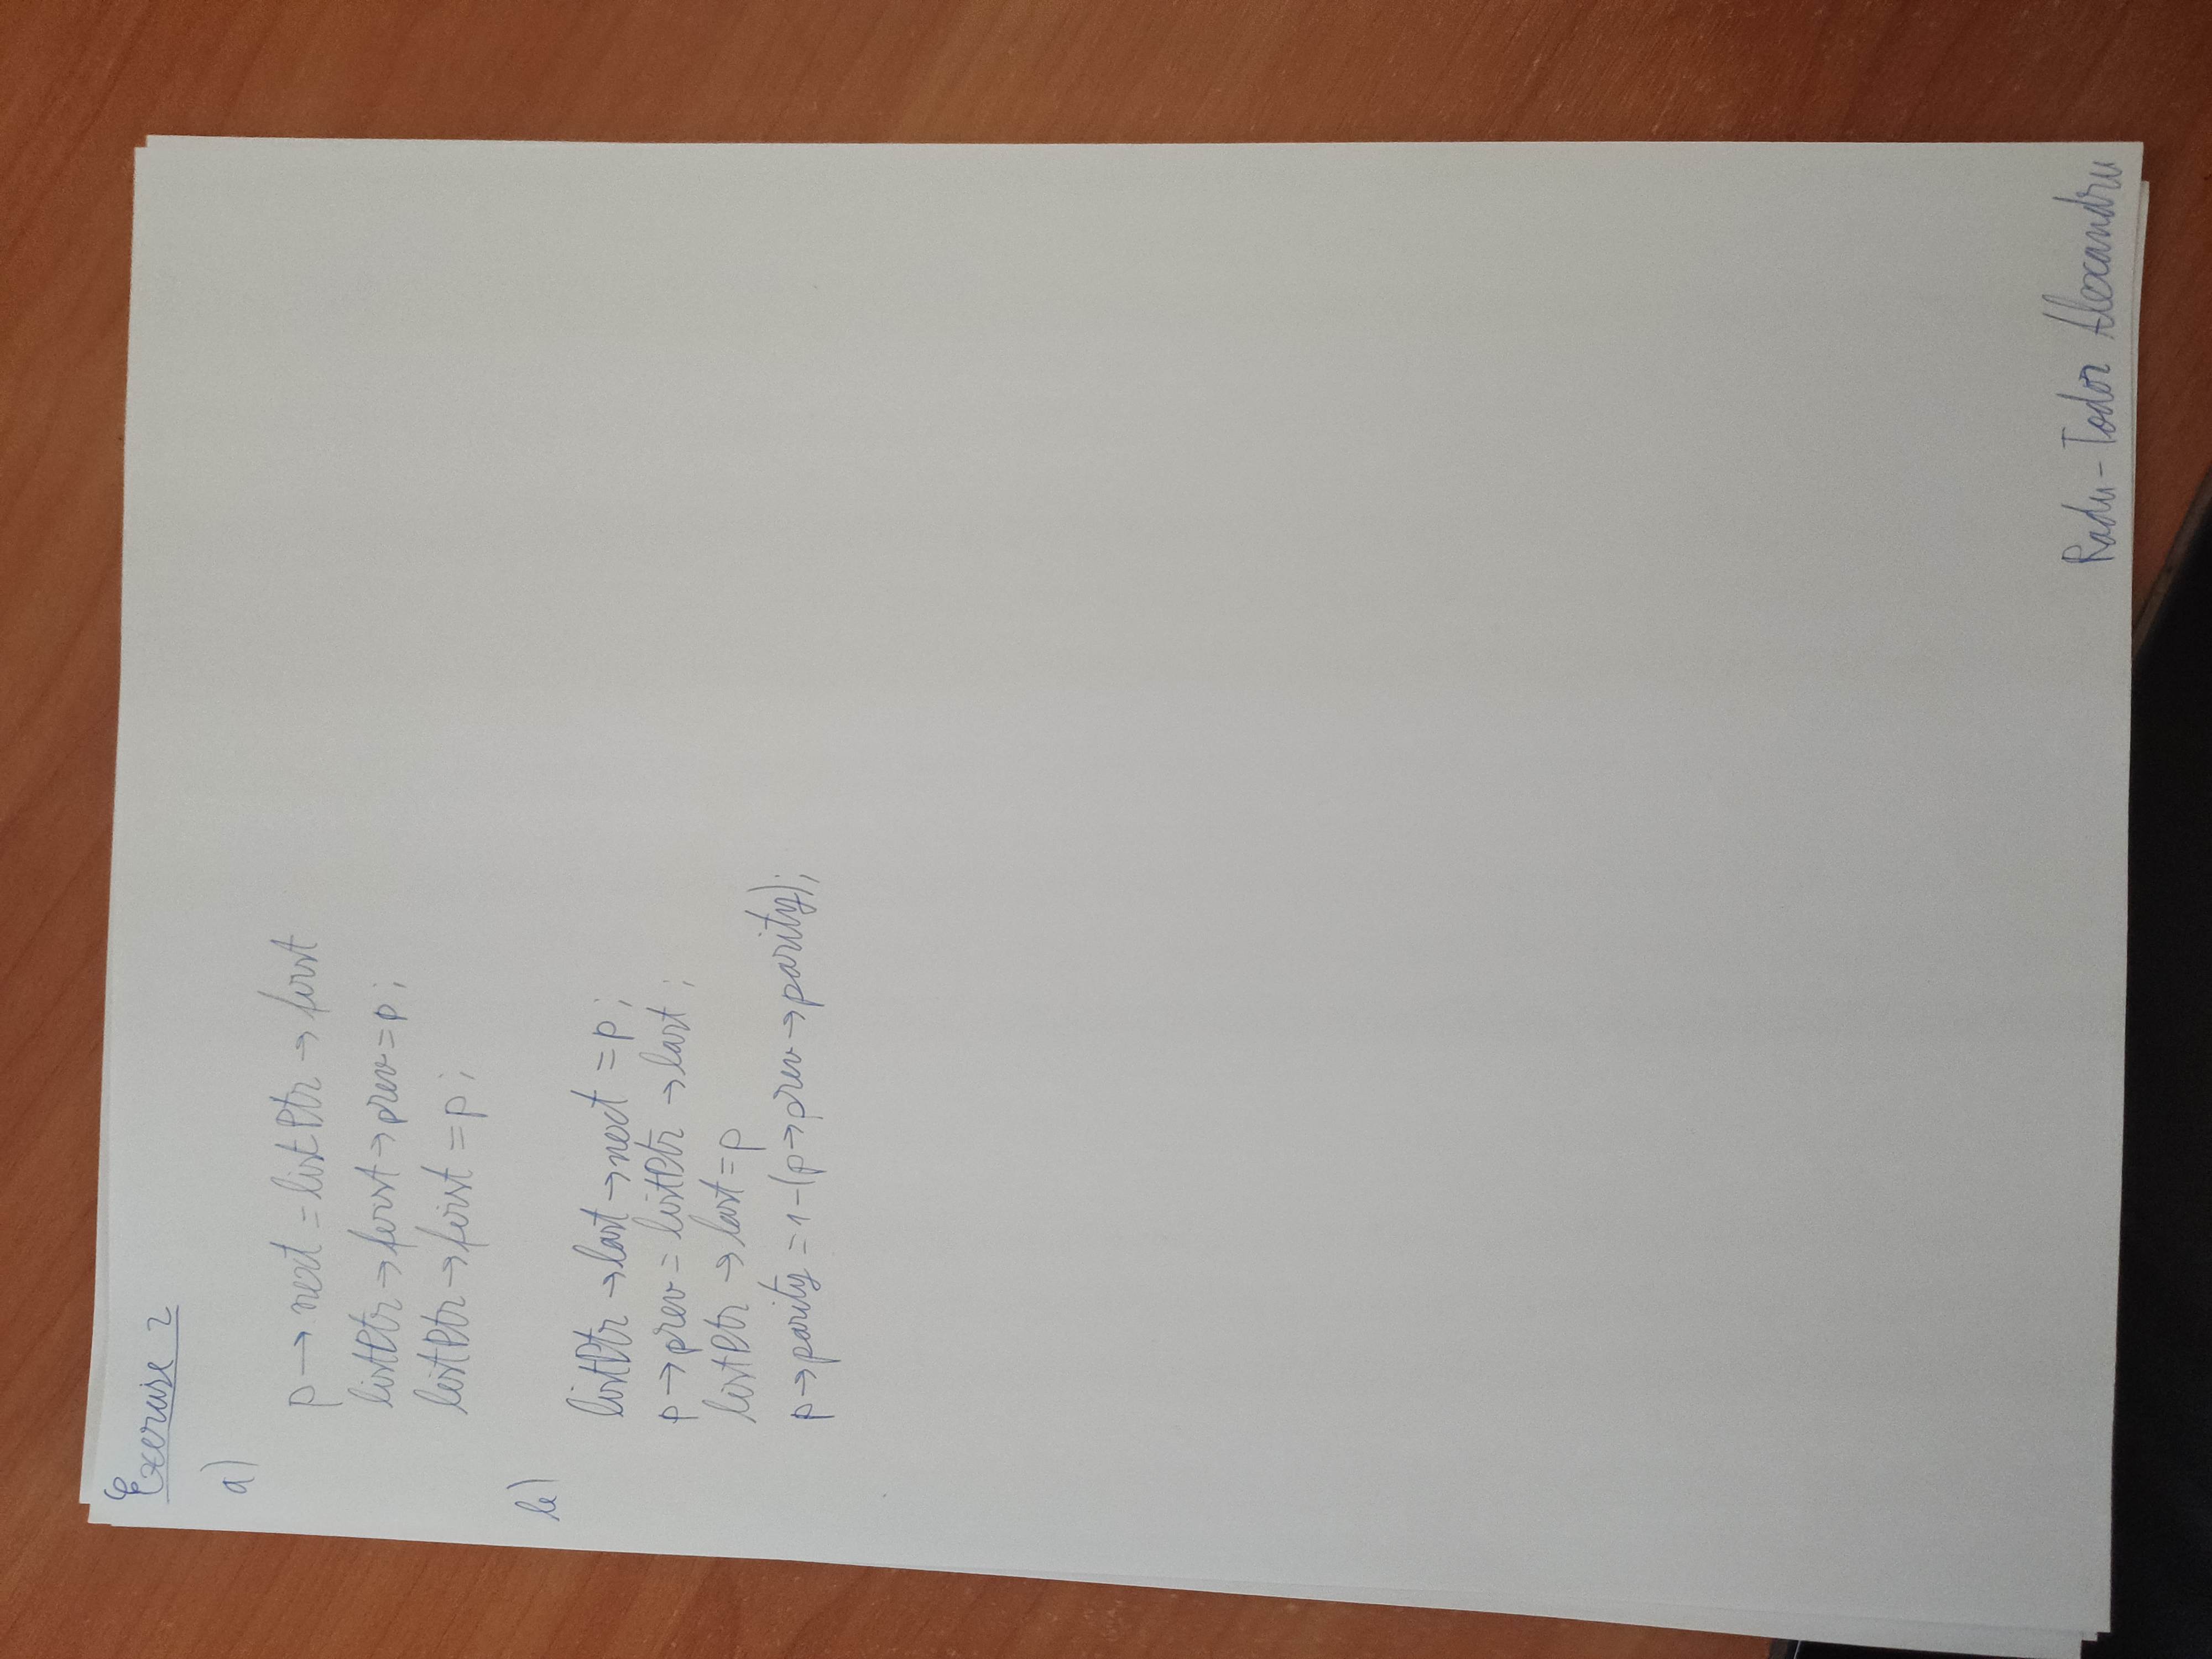 Exercise 2
a)
p → next = listPtr → first
listPtr → first → prev = p ;
listPtr → first = p ;
b)
listPtr → last → next = p ;
p → prev = listPtr → last ;
listPtr → last = p
p → parity = 1 - (p → prev → parity) ;
Radu - Todor Alexandru